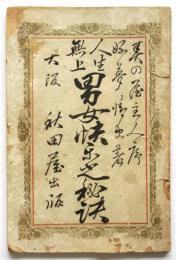 美の屋主人序
好夢情史著
人生
無上
男女快楽之秘訣
大阪 秋田屋出版